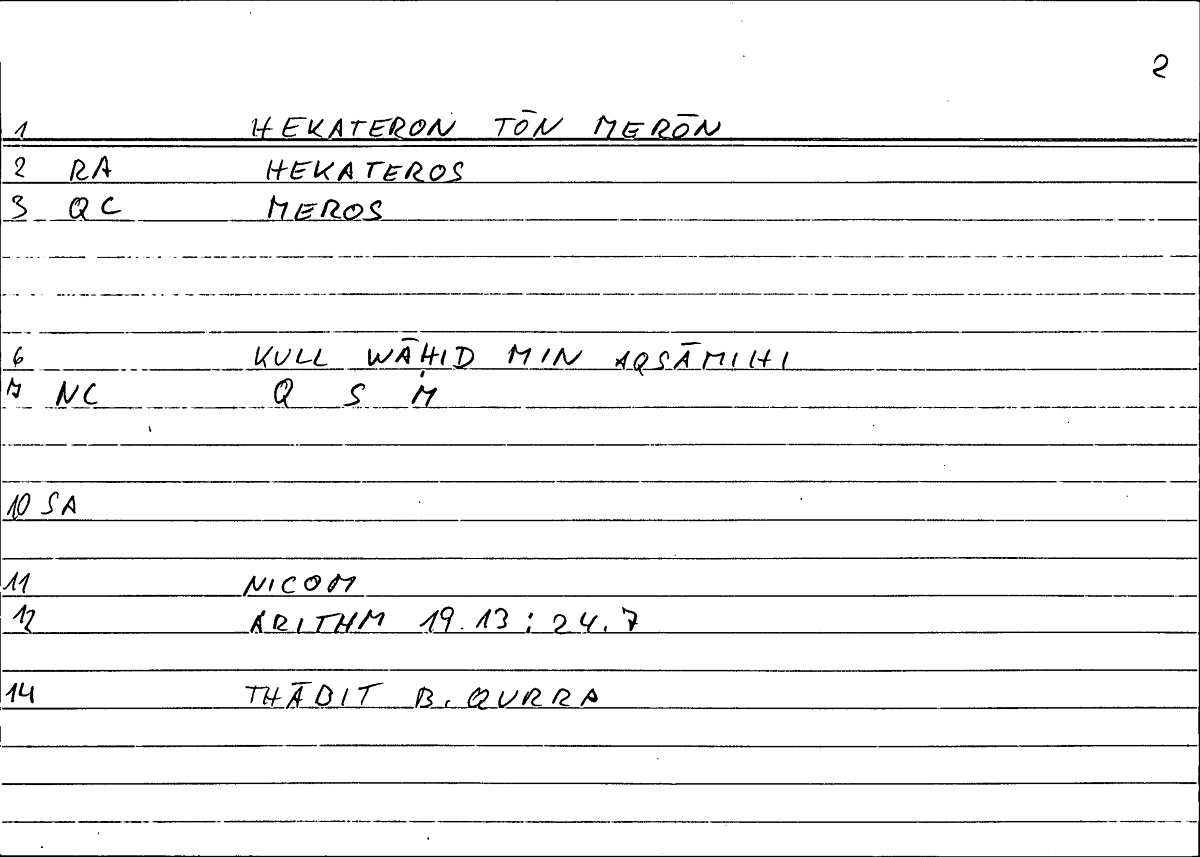 2
1 HEKATERON TŌN MERŌN
2 RA HEKATEROS
3 QC MEROS
6 KULL WĀḤID MIN AQSĀMIHI
7 NC Q S M
10 SA
11 NICOM
12 ARITHM 19.13 : 24.7
14 THĀBIT B. QURRA